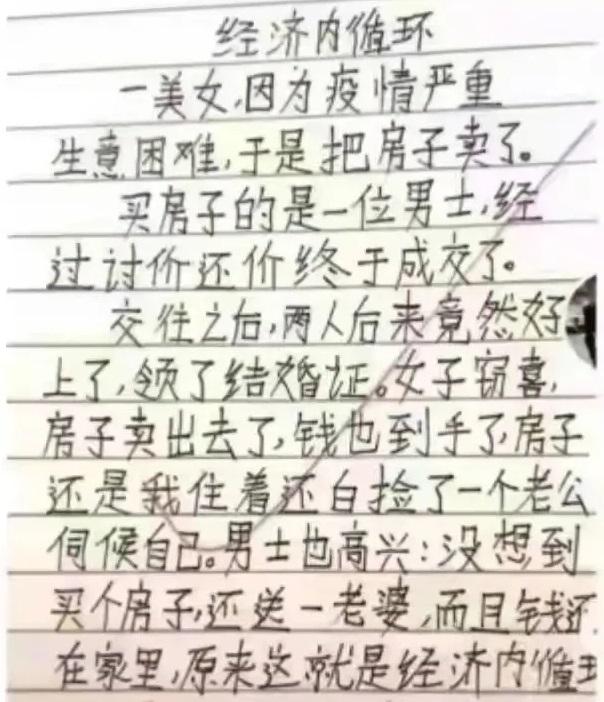 经济内循环
一美女,因为疫情严重
生意困难,于是把房子卖了。
买房子的是一位男士,经
过讨价还价终于成交了。
交往之后,两人后来竟然好
上了,领了结婚证。女子窃喜,
房子卖出去了,钱也到手了,房子
还是我住着还白捡了一个老公
伺候自己。男士也高兴:没想到
买个房子,还送一老婆,而且钱还
在家里,原来这就是经济内循环